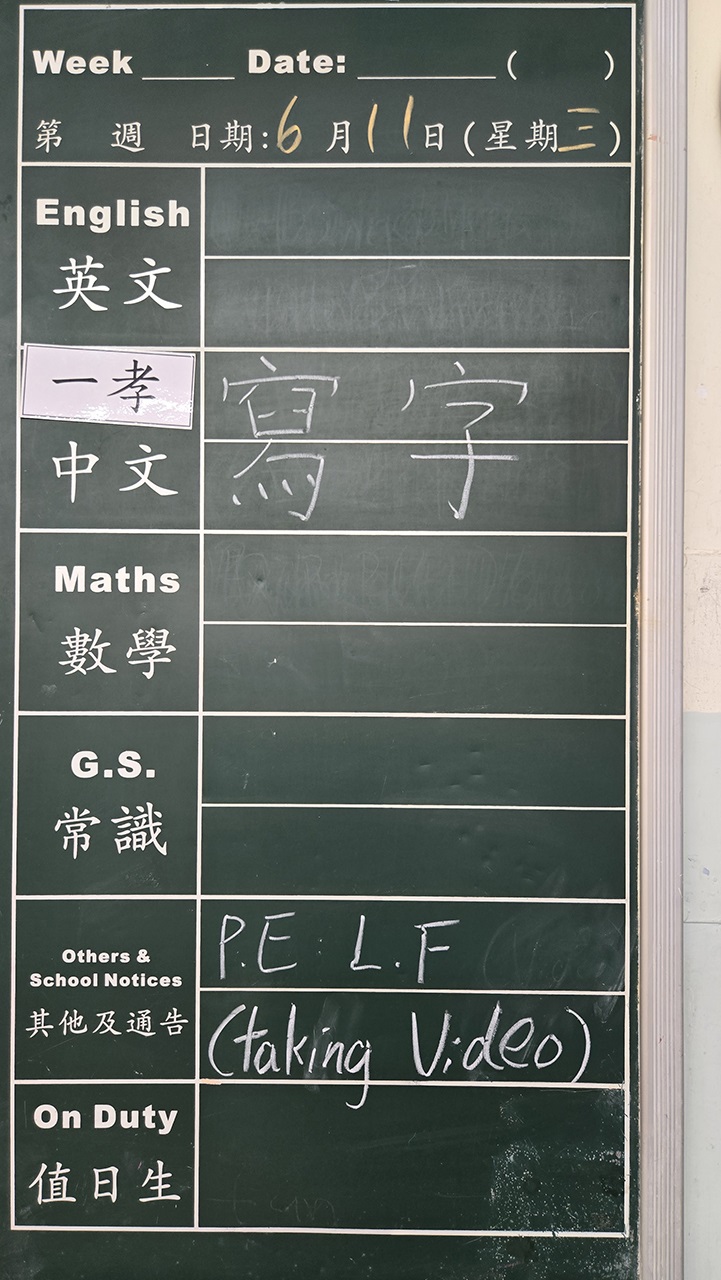 Week ______ Date: _________ ( )
第 週 日期:6月11日(星期三)
English
英文
一孝
中文
寫字
Maths
數學
G.S.
常識
Others &
School Notices
其他及通告
P.E: L.F
(taking Video)
On Duty
值日生